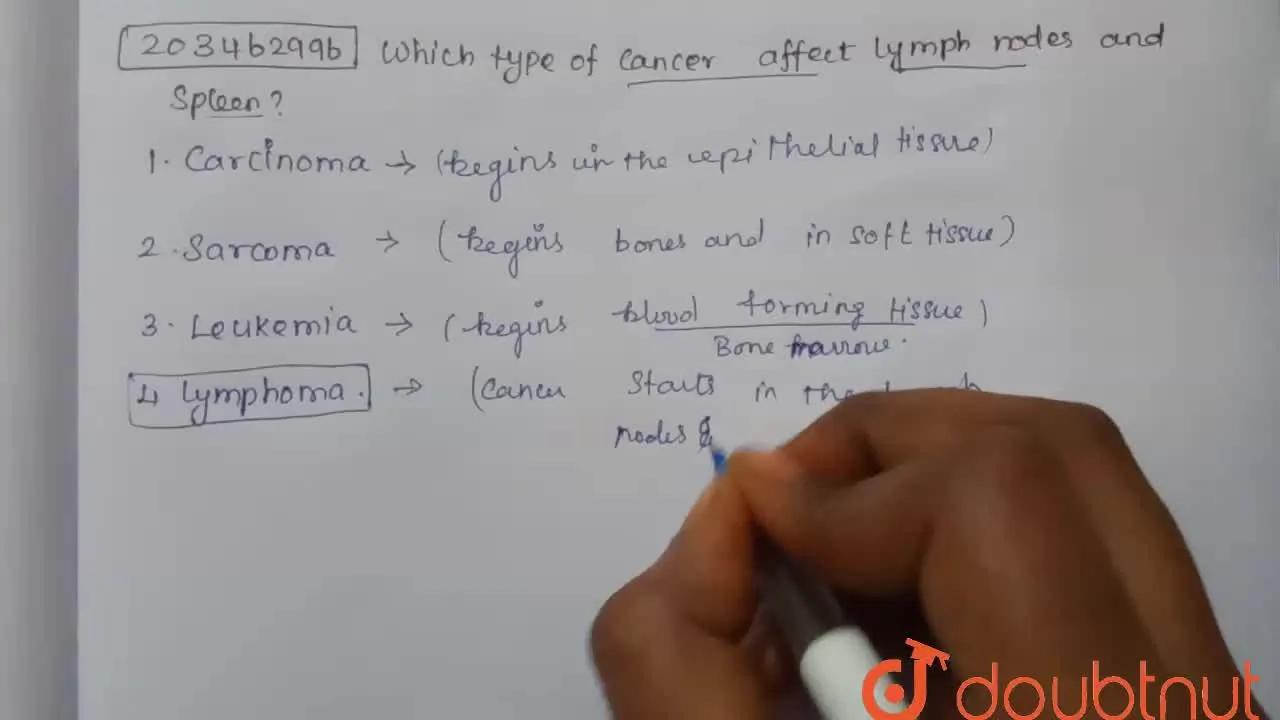 203462996 Which type of cancer affect lymph nodes and
Spleen?
1. Carcinoma → (begins in the epithelial tissue)
2. Sarcoma → (begins bones and in soft tissue)
3. Leukemia → (begins blood forming tissue)
Bone marrow.
4 lymphoma. → (Cancer starts in the
nodes &
doubtnut